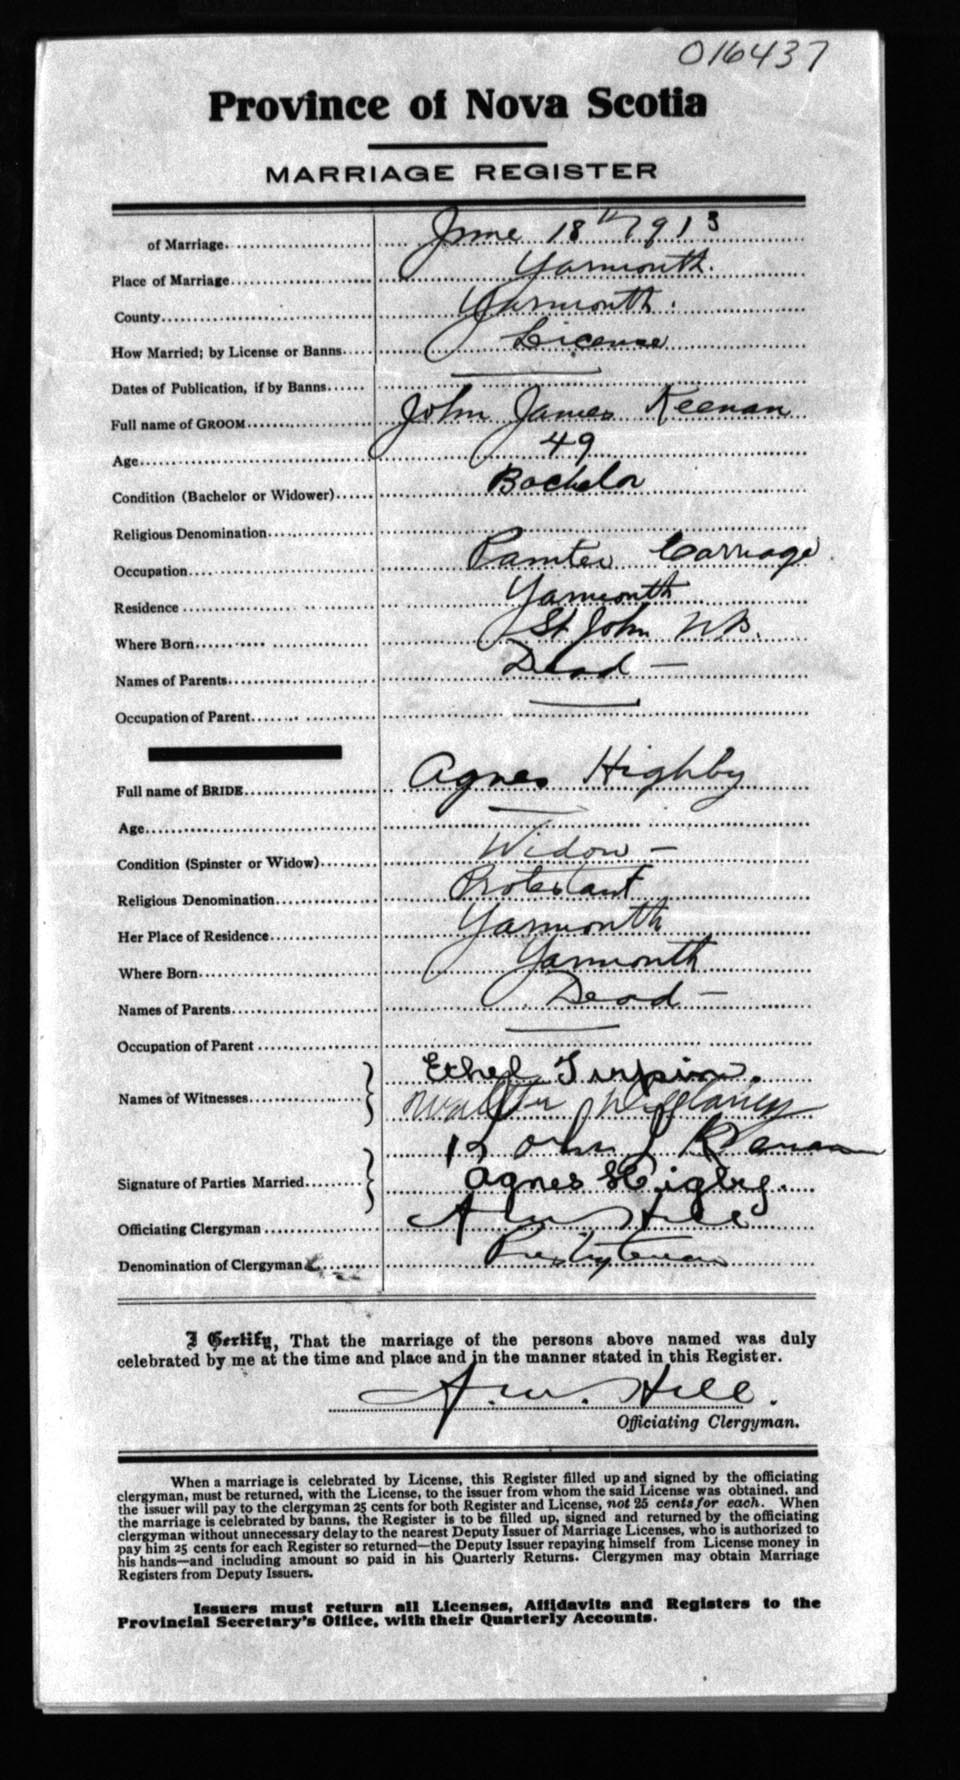 016437
Province of Nova Scotia
MARRIAGE REGISTER
of Marriage June 18th 1913
Place of Marriage Yarmouth.
County Yarmouth.
How Married; by License or Banns License
Dates of Publication, if by Banns
Full name of GROOM John James Keenan
Age 49
Condition (Bachelor or Widower) Bachelor
Religious Denomination
Occupation Painter Carriage
Residence Yarmouth
Where Born St John NB.
Names of Parents Dead —
Occupation of Parent
Full name of BRIDE Agnes Highby
Age
Condition (Spinster or Widow) Widow —
Religious Denomination Protestant
Her Place of Residence Yarmouth
Where Born Yarmouth
Names of Parents Dead —
Occupation of Parent
Ethel Turpin.
Names of Witnesses Walter
John J Keenan
Signature of Parties Married Agnes Higby.
Officiating Clergyman A W Hill
Denomination of Clergyman Presbyterian
I Certify, That the marriage of the persons above named was duly
celebrated by me at the time and place and in the manner stated in this Register.
A. W. Hill.
Officiating Clergyman.
When a marriage is celebrated by License, this Register filled up and signed by the officiating
clergyman, must be returned, with the License, to the issuer from whom the said License was obtained, and
the issuer will pay to the clergyman 25 cents for both Register and License, not 25 cents for each. When
the marriage is celebrated by banns, the Register is to be filled up, signed and returned by the officiating
clergyman without unnecessary delay to the nearest Deputy Issuer of Marriage Licenses, who is authorized to
pay him 25 cents for each Register so returned—the Deputy Issuer repaying himself from License money in
his hands—and including amount so paid in his Quarterly Returns. Clergymen may obtain Marriage
Registers from Deputy Issuers.
Issuers must return all Licenses, Affidavits and Registers to the
Provincial Secretary's Office, with their Quarterly Accounts.